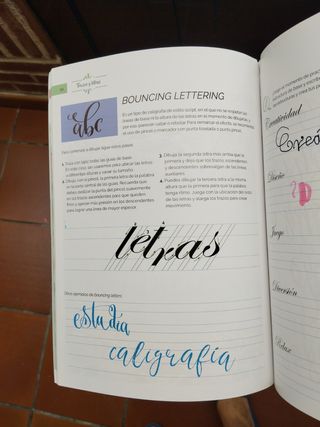 Trazos y letras
abc
BOUNCING LETTERING
Es un tipo de caligrafía de estilo script, en el que no se respetan las
líneas de base ni la altura de las letras en su momento de dibujarlas, y
por eso parecen saltar o rebotar. Para remarcar el efecto, se recomienda
el uso de pincel o marcador con punta biselada o punta pincel.
Para comenzar a dibujar sigue estos pasos:
1. Traza con lápiz todas las guías de base.
En este caso, son necesarias para ubicar las letras
a diferentes alturas y variar su tamaño.
2. Dibuja con el pincel, la primera letra de la palabra
en la parte central de las guías. Recuerda que
debes deslizar la punta del pincel suavemente
en los trazos ascendentes para que queden
finos y ejercer más presión en los descendentes
para lograr una línea de mayor espesor.
3. Dibuja la segunda letra más arriba que la
primera y deja que los trazos ascendentes
y descendentes sobresalgan de las líneas
auxiliares.
4. Puedes dibujar la tercera letra a la misma
altura que la primera para que la palabra
tenga ritmo. Juega con la ubicación del resto
de las letras y alarga los trazos para crear
movimiento.
letras
Otros ejemplos de bouncing letters:
estudia
caligrafía
Creatividad
Diseño
Juego
Diversión
Relax